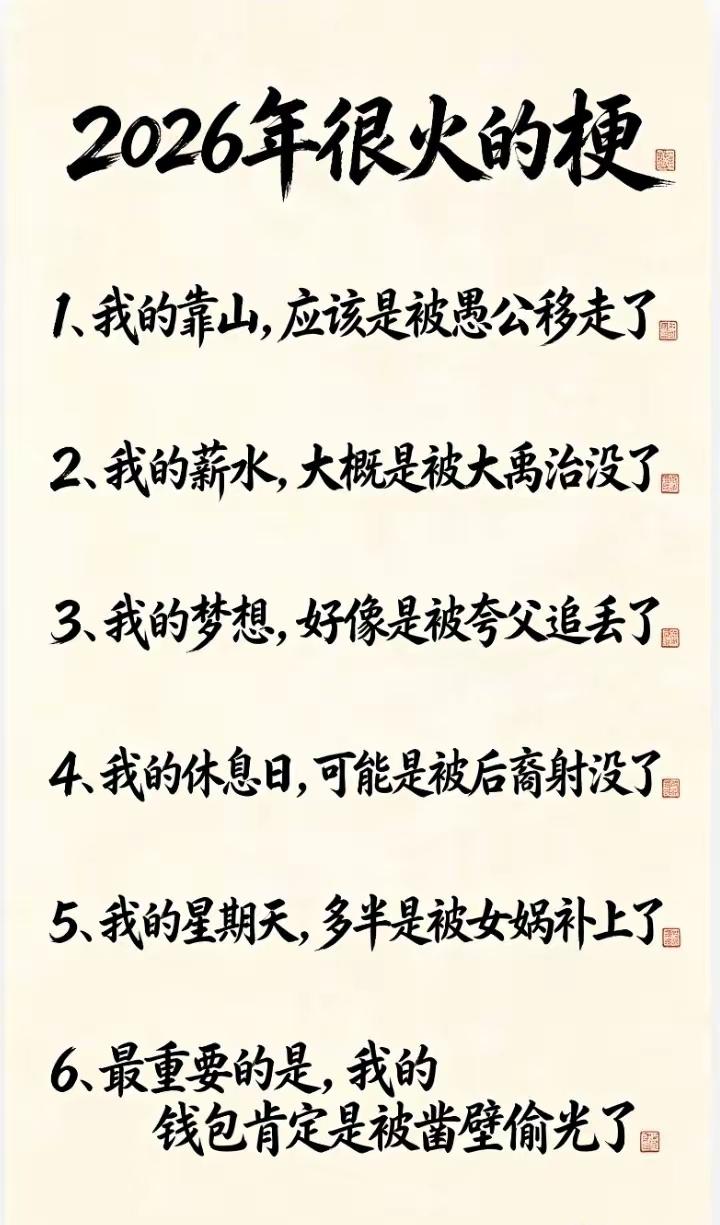 2026年很火的梗
1、我的靠山,应该是被愚公移走了
2、我的薪水,大概是被大禹治没了
3、我的梦想,好像是被夸父追丢了
4、我的休息日,可能是被后裔射没了
5、我的星期天,多半是被女娲补上了
6、最重要的是,我的
钱包肯定是被凿壁偷光了